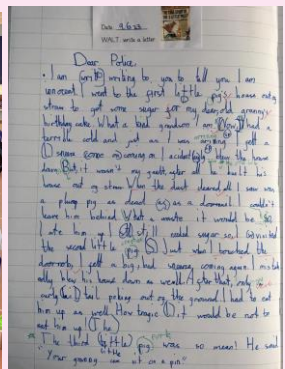 Date 9.6.23
WALT: write a letter
Dear Police,
I am writing to you to tell you I am
innocent. I went to the first little pig's house
to get some sugar for my dear old granny's
birthday cake. What a kind grandson am I. Now I had a
terrible cold and just as I was I felt a
sneeze coming on. I blew the house
down. But it wasn't my fault, after all he built his
house out of straw. When the dust cleared all I saw was
a pig as dead as a doornail. I couldn't
leave him behind. What a waste it would be. So
I ate him up. I still needed sugar so I visited
the second little pig. But when I knocked the
I felt a big, bad sneeze coming again. I
blew his house down as well. After that, only
curly tail poking out on the ground. I had to eat
him up as well. How tragic it would be not to
eat him up!
The third little pig was so mean! He said
"Your granny can sit on a pin"